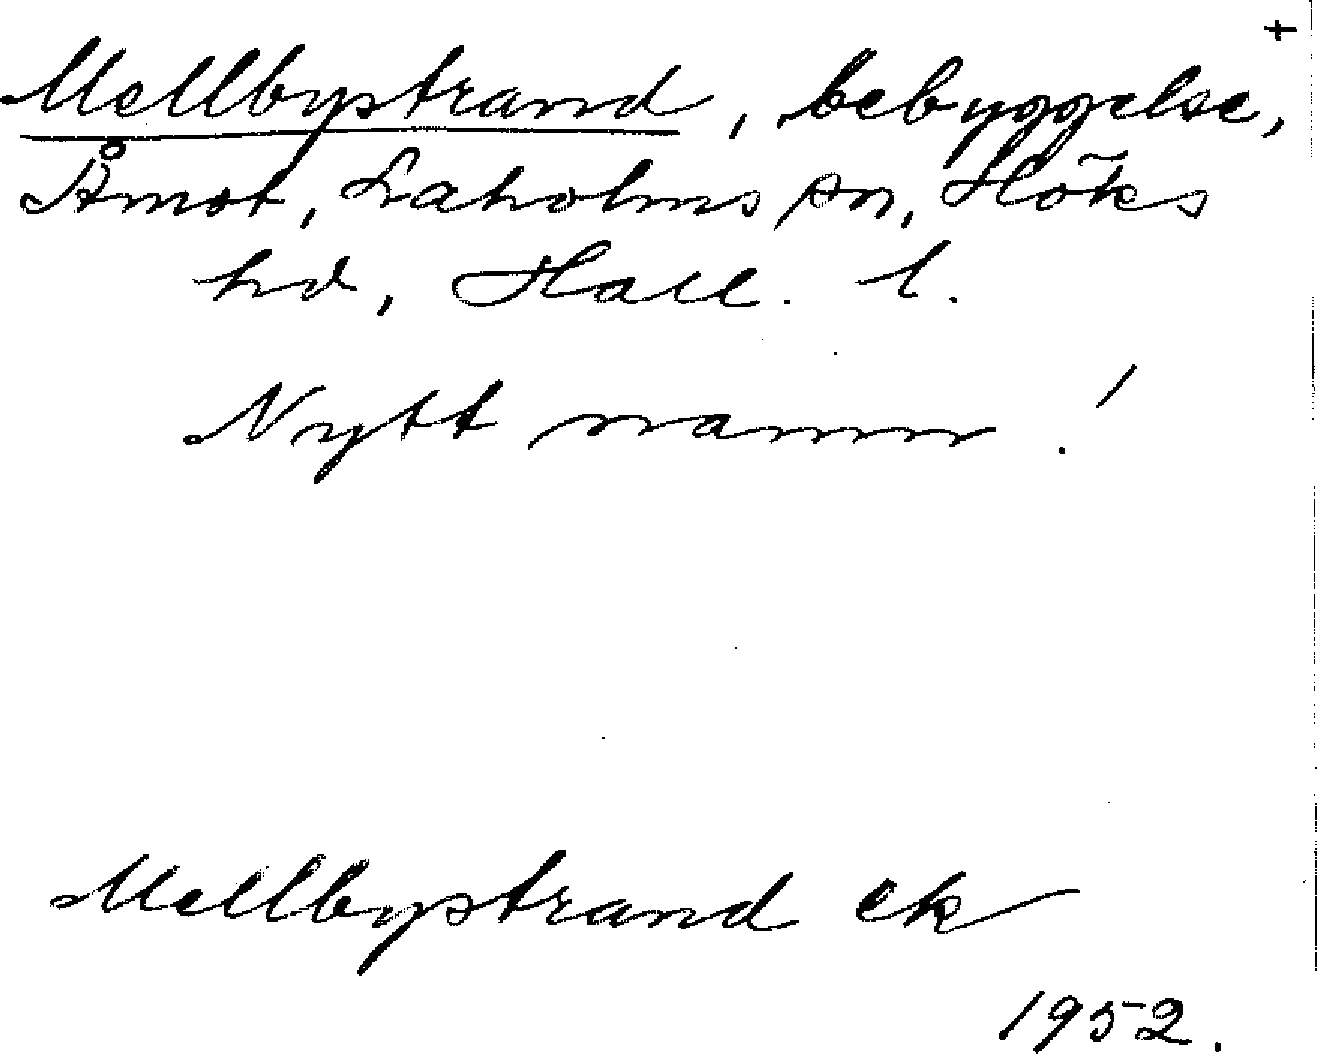 +
Mellbystrand, bebyggelse,
Åmot, Laholms sn, Höks
hd, Hall. l.
Nytt namn!
Mellbystrand ek
1952.